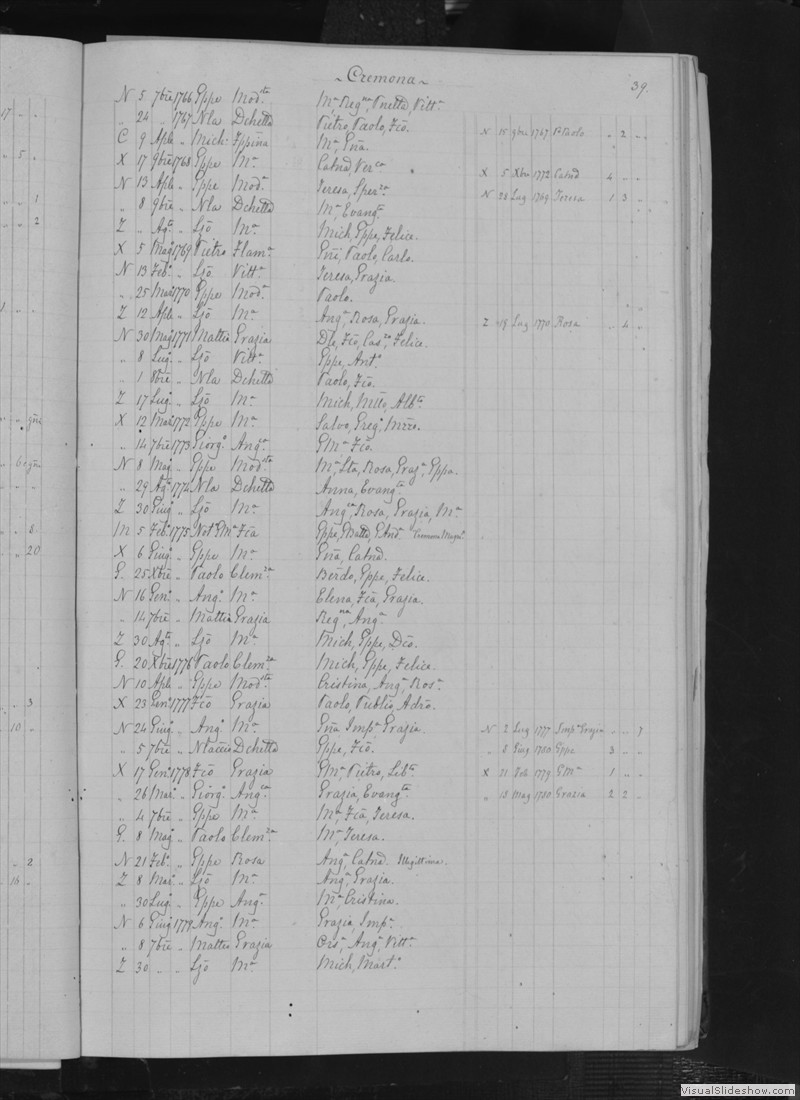 ~Cremona~
39.
N 5 7bre 1766 Gppe Mod.sta Ma, Regna, Vnetta, Vitt.a
„ 24 „ 1767 Nla Dchetta Pietro, Paolo, Fco. N 15 9bre 1767 Po Paolo „ 2 „
C 9 Aple „ Mich. Fppina Ma, Gna.
X 17 9bre 1768 Gppe Ma Catnd, Verca X 5 Xbre 1772 Catnd 4 „ „
N 13 Aple „ Gppe Moda Teresa, Sperza N 28 Lug 1769 Teresa 1 3 „
„ 8 9bre „ Nla Dchetta Ma, Evangta
Z „ Agto „ Ljo Ma Mich, Gppe, Felice.
X 5 Mago 1769 Pietro Flama Gni, Paolo, Carlo.
N 13 Febo „ Ljo Vitta Teresa, Grazia.
„ 25 Mar 1770 Gppe Moda Paolo.
Z 12 Aple „ Ljo Ma Anga, Rosa, Grazia. Z 19 Lug 1770 Rosa „ 4 „
N 30 Mago 1771 Matteo Grazia Dle, Fco, Casro, Felice.
„ 8 Lugo „ Ljo Vitta Gppe, Anto
„ 1 8bre „ Nla Dchetta Paolo, Fco.
Z 17 Lugo „ Ljo Ma Mich, Mtteo, Albto
X 12 Mar 1772 Gppe Ma Salvo, Grego,
„ 14 7bre 1773 Giorgo Anga GMa Fco.
N 8 Mago „ Gppe Modsta Ma Lta, Rosa, Graza, Gppa.
„ 29 Agto 1774 Nla Dchetta Anna, Evangta
Z 30 Giugo „ Ljo Ma Anga, Rosa, Grazia, Ma
M 5 Febo 1775 Not GMa Fca Gppe, Matto, GAnda
X 6 Giugo „ Gppe Ma Gna, Catnd.
G. 25 Xbre „ Paolo Clemza Berdo, Gppe, Felice.
N 16 Geno „ Ango Ma Elena, Fca, Grazia.
„ 14 7bre „ Matteo Grazia Regna, Anga
Z 30 Agto „ Ljo Ma Mich, Gppe, Dco.
G. 20 Xbre 1776 Paolo Clemza Mich, Gppe, Felice.
N 10 Aple „ Gppe Modsta Cristina, Anga, Rosa
X 23 Geno 1777 Fco Grazia Paolo, Publio, Adro.
N 24 Giugo „ Ango Ma Gna Impa, Grazia. N 2 Lug 1777 Impa Grazia „ „ 7
„ 5 7bre „ Nlaccio Dchetta Gppe, Fco. „ 8 Giug 1780 Gppe 3 „ „
X 17 Geno 1778 Fco Grazia GMa, Pietro, Libto X 21 Feb 1779 GMa 1 „ „
„ 26 Mar „ Giorgo Angca Grazia, Evangta „ 18 Mag 1780 Grazia 2 2 „
„ 4 7bre „ Gppe Ma Ma, Fca, Teresa.
G. 8 Mago „ Paolo Clemza Ma, Teresa.
N 21 Febo „ Gppe Rosa Anga, Catnd. Illegittima.
Z 8 Mar „ Ljo Ma Anga, Grazia.
„ 30 Lugo „ Gppe Anga Ma Cristina.
N 6 Giugo 1779 Ango Ma Grazia, Impa
„ 8 7bre „ Matteo Grazia Orsa, Anga, Vitta
Z 30 „ „ Ljo Ma Mich, Marto
VisualSlideshow.com